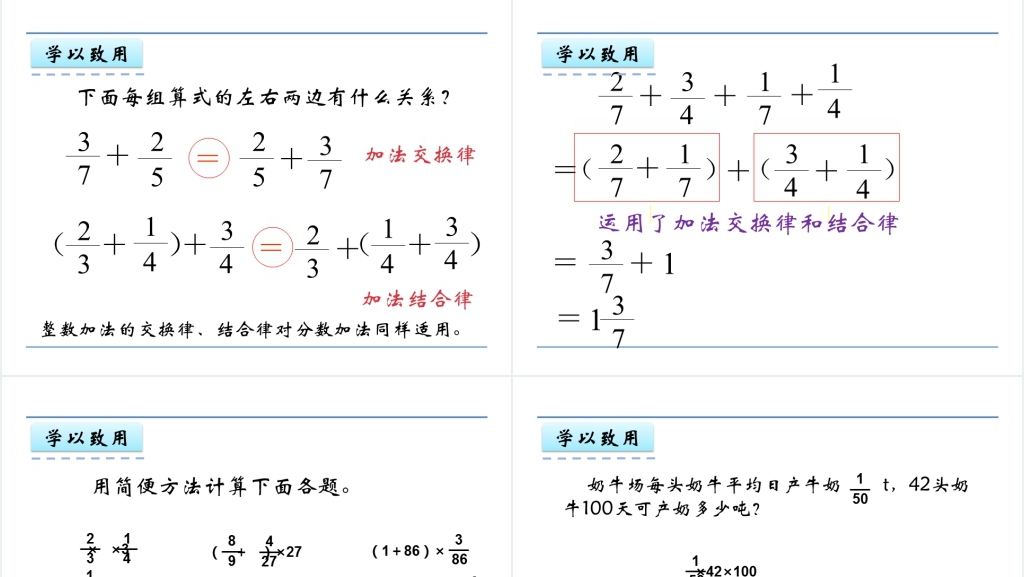 学以致用
下面每组算式的左右两边有什么关系?
3/7 + 2/5 = 2/5 + 3/7 加法交换律
(2/3 + 1/4) + 3/4 = 2/3 + (1/4 + 3/4)
加法结合律
整数加法的交换律、结合律对分数加法同样适用。
学以致用
2/7 + 3/4 + 1/7 + 1/4
= (2/7 + 1/7) + (3/4 + 1/4)
运用了加法交换律和结合律
= 3/7 + 1
= 1 3/7
学以致用
用简便方法计算下面各题。
(8/9 + 4/27) ×27 (1+86) × 3/86
学以致用
奶牛场每头奶牛平均日产牛奶 1/50 t，42头奶
牛100天可产奶多少吨?
×42×100